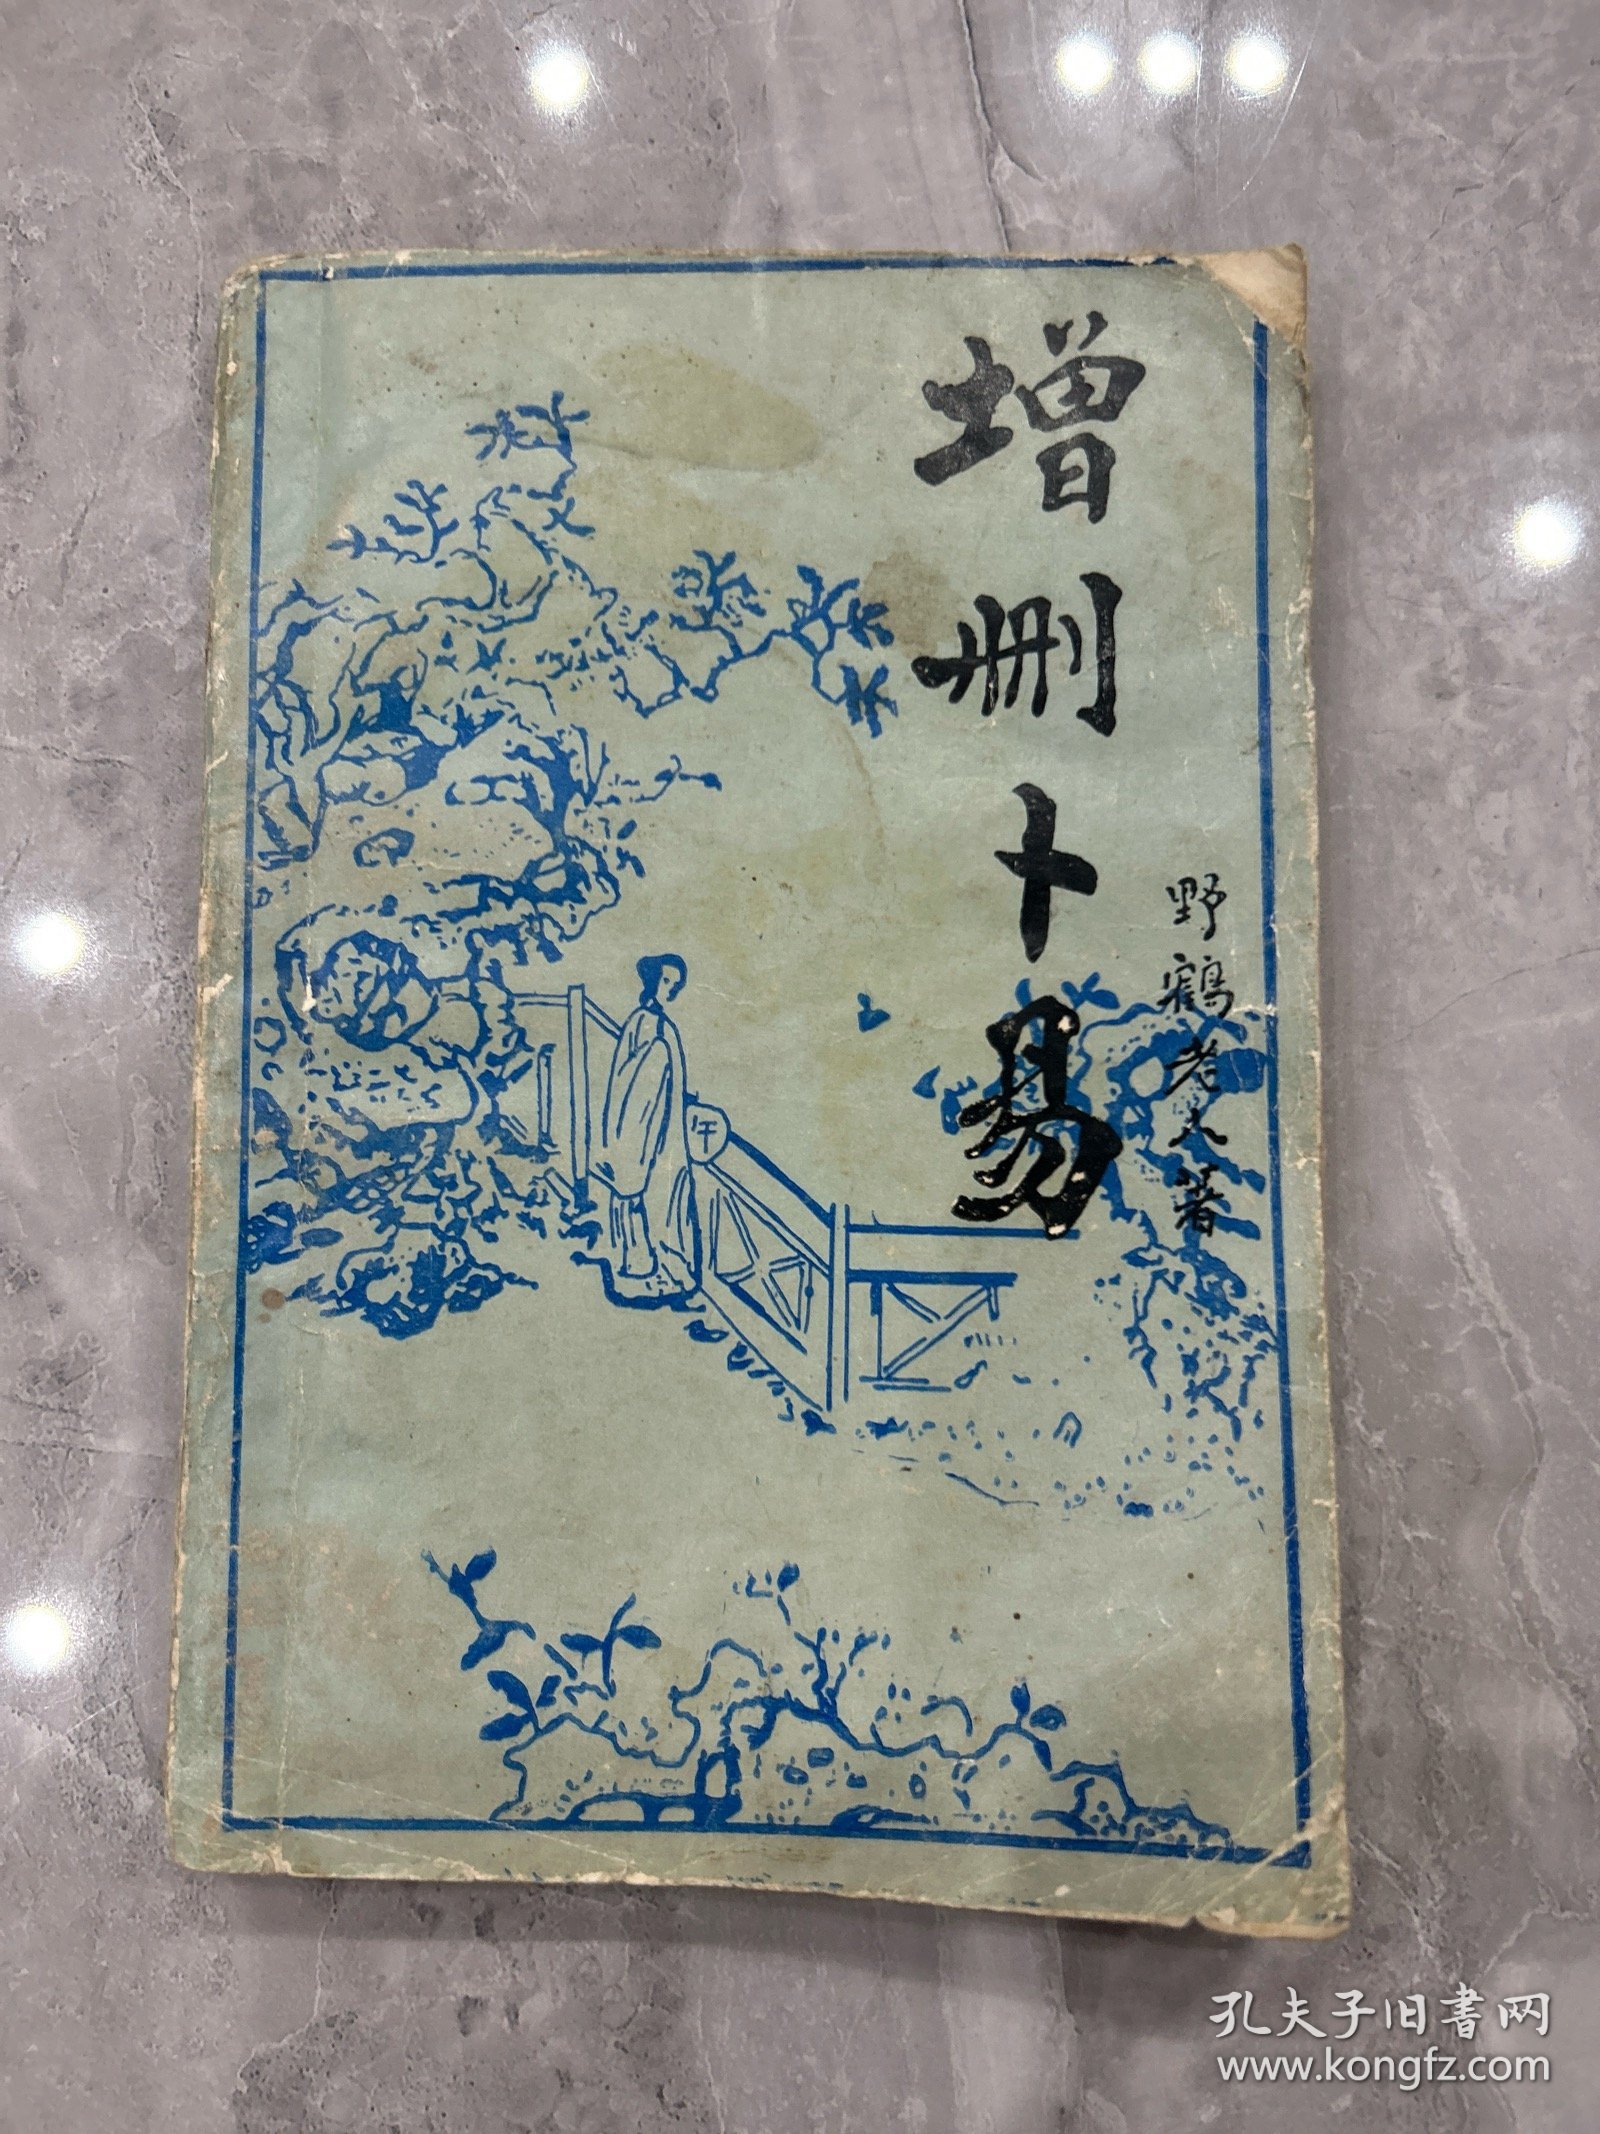 增删卜易
野鶴老人著
孔夫子旧書网
www.kongfz.com